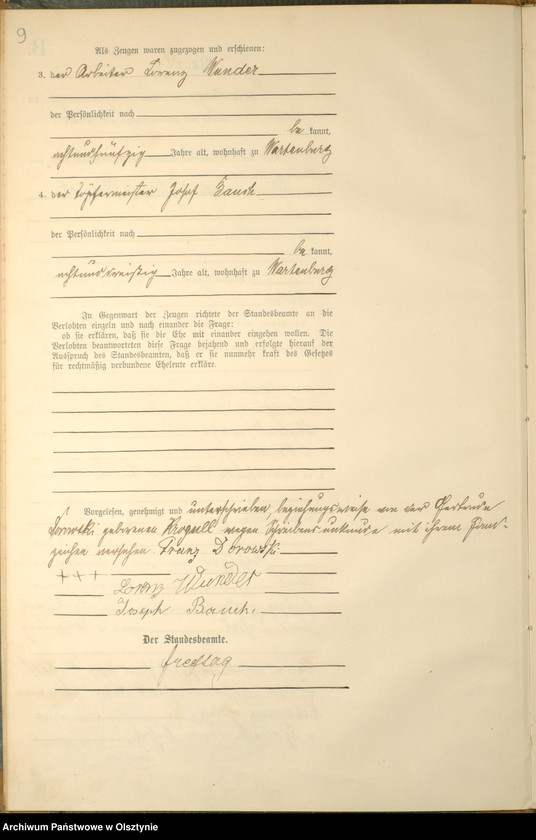 9
Als Zeugen waren zugezogen und erschienen:
3. der Arbeiter Lorenz Wunder
der Persönlichkeit nach
be kannt,
achtundfünfzig Jahre alt, wohnhaft zu Wartenburg
4. der Töpfermeister Josef Bauch
der Persönlichkeit nach
be kannt,
achtunddreißig Jahre alt, wohnhaft zu Wartenburg
In Gegenwart der Zeugen richtete der Standesbeamte an die
Verlobten einzeln und nach einander die Frage:
ob sie erklären, daß sie die Ehe mit einander eingehen wollen. Die
Verlobten beantworteten diese Frage bejahend und erfolgte hierauf der
Ausspruch des Standesbeamten, daß er sie nunmehr kraft des Gesetzes
für rechtmäßig verbundene Eheleute erkläre.
Vorgelesen, genehmigt und unterschrieben, beziehungsweise von der Gertrude
geborenen Krogull wegen Schreibensunkunde mit ihrem Hand-
zeichen versehen. Franz Dorowski
+++
Lorenz Wunder
Joseph Bauch.
Der Standesbeamte.
Freytag
Archiwum Państwowe w Olsztynie